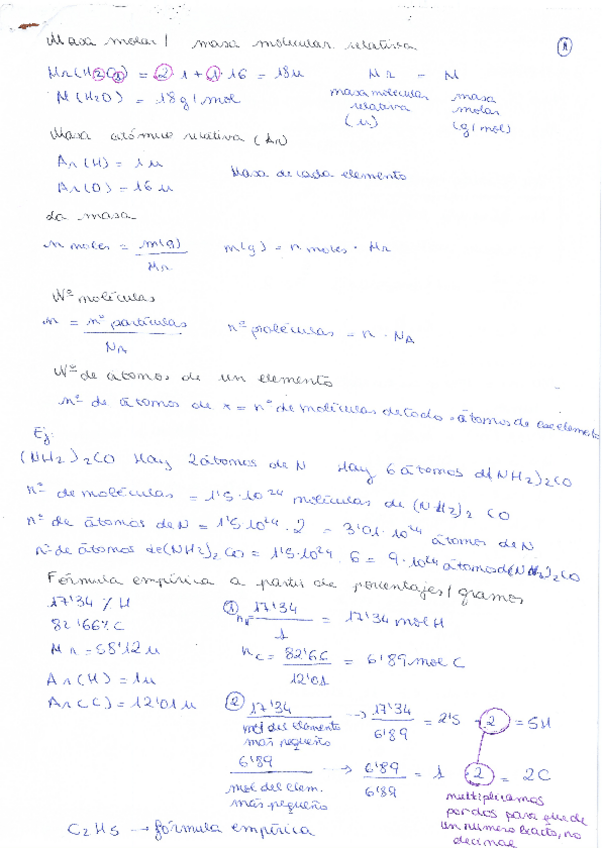 Masa molar / masa molecular relativa
1
Mr(H2O1) = 2·1 + 1·16 = 18u   Mr - M
M(H2O) = 18g/mol   masa molecular relativa (u)   masa molar (g/mol)
Masa atómica relativa (Ar)
Ar(H) = 1u
Ar(O) = 16u   Masa de cada elemento
La masa
n moles = m(g) / Mr   m(g) = n moles · Mr
Nº moléculas
n = nº partículas / NA   nº moléculas = n · NA
Nº de átomos de un elemento
nº de átomos de x = nº de moléculas de todo · átomos de ese elemento
Ej:
(NH2)2CO Hay 2 átomos de N   Hay 6 átomos d(NH2)2CO
nº de moléculas = 1'5·10^24 moléculas de (NH2)2 CO
nº de átomos de N = 1'5·10^24 · 2 = 3'01·10^24 átomos de N
nº de átomos de(NH2)2CO = 1'5·10^24 · 6 = 9·10^24 átomos de(NH2)2CO
Fórmula empírica a partir de porcentajes / gramos
17'34 % H   1 n = 17'34 / 1 = 17'34 mol H
82'66% C
Mr = 58'12u   nC = 82'66 / 12'01 = 6'89 mol C
Ar(H) = 1u
Ar(C) = 12'01u   2 17'34 / mol del elemento más pequeño → 17'34 / 6'89 = 2'5 · 2 = 5H
6'89 / mol del elem. más pequeño → 6'89 / 6'89 = 1 · 2 = 2C
multiplicamos
por dos para que de
un número exacto, no
decimal
C2H5 → fórmula empírica